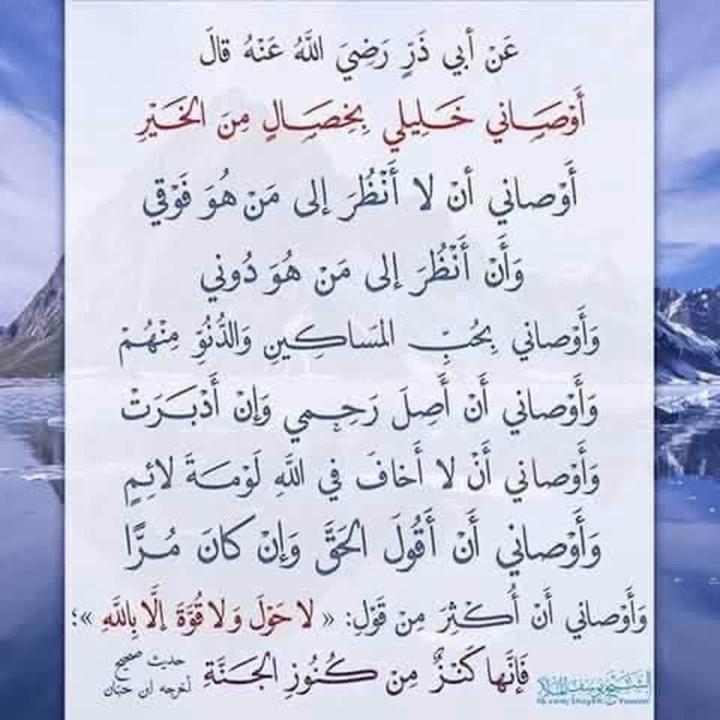 عَنْ أَبي ذَرٍّ رَضِيَ اللَّهُ عَنْهُ قالَ
أَوْصَاني خَلِيلي بِخِصَالٍ مِنَ الخَيْرِ
أَوْصاني أنْ لا أَنْظُرَ إلى مَنْ هُوَ فَوْقي
وَأَنْ أَنْظُرَ إلى مَنْ هُوَ دُوني
وَأَوْصاني بِحُبِّ المَساكِينِ وَالدُّنُوِّ مِنْهُمْ
وَأَوْصاني أَنْ أَصِلَ رَحِمِي وَإنْ أَدْبَرَتْ
وَأَوْصاني أَنْ لا أَخافَ في اللَّهِ لَوْمَةَ لائِمٍ
وَأَوْصاني أَنْ أَقُولَ الحَقَّ وَإنْ كانَ مُرًّا
وَأَوْصاني أَنْ أُكْثِرَ مِنْ قَوْلِ: « لا حَوْلَ وَلا قُوَّةَ إلَّا بِاللَّهِ »؛
فَإنَّها كَنْزٌ مِنْ كُنُوزِ الجَنَّةِ
حديث صحيح
أخرجه ابن حبان